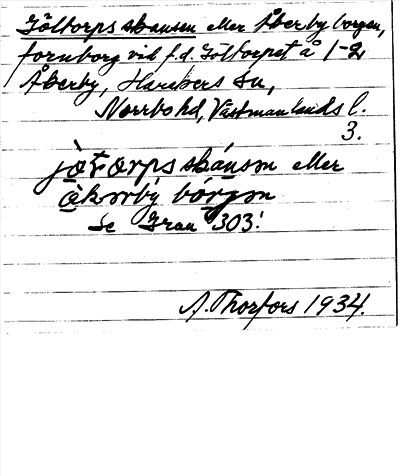 Jöltorps skansen eller Åberby borgen,
fornborg vid f.d. Jöltorpet å 1-2
Åberby, Harakers sn,
Norrbo hd, Västmanlands l.
3.
skánsən eller
bórgən
Se Gran 303!
A. Thorfors 1934.